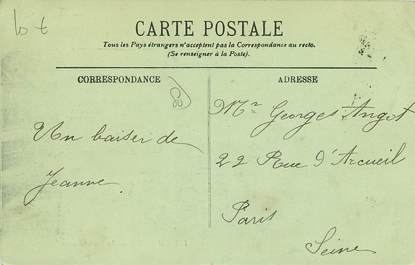 CARTE POSTALE
Tous les Pays étrangers n'acceptent pas la Correspondance au recto.
(Se renseigner à la Poste).
CORRESPONDANCE
Un baiser de
Jeanne.
ADRESSE
Mr Georges Angot
22 Rue d'Arcueil
Paris
Seine